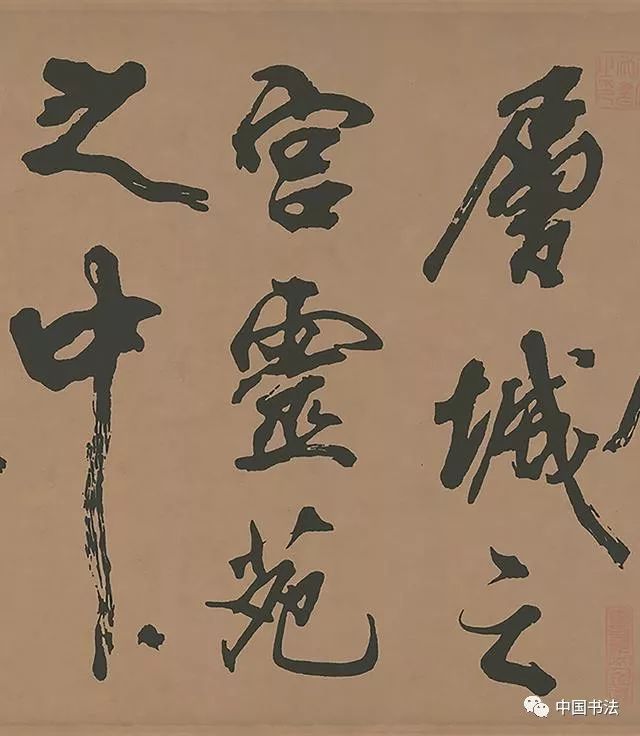 層城之
宮靈苑
之中
中国书法